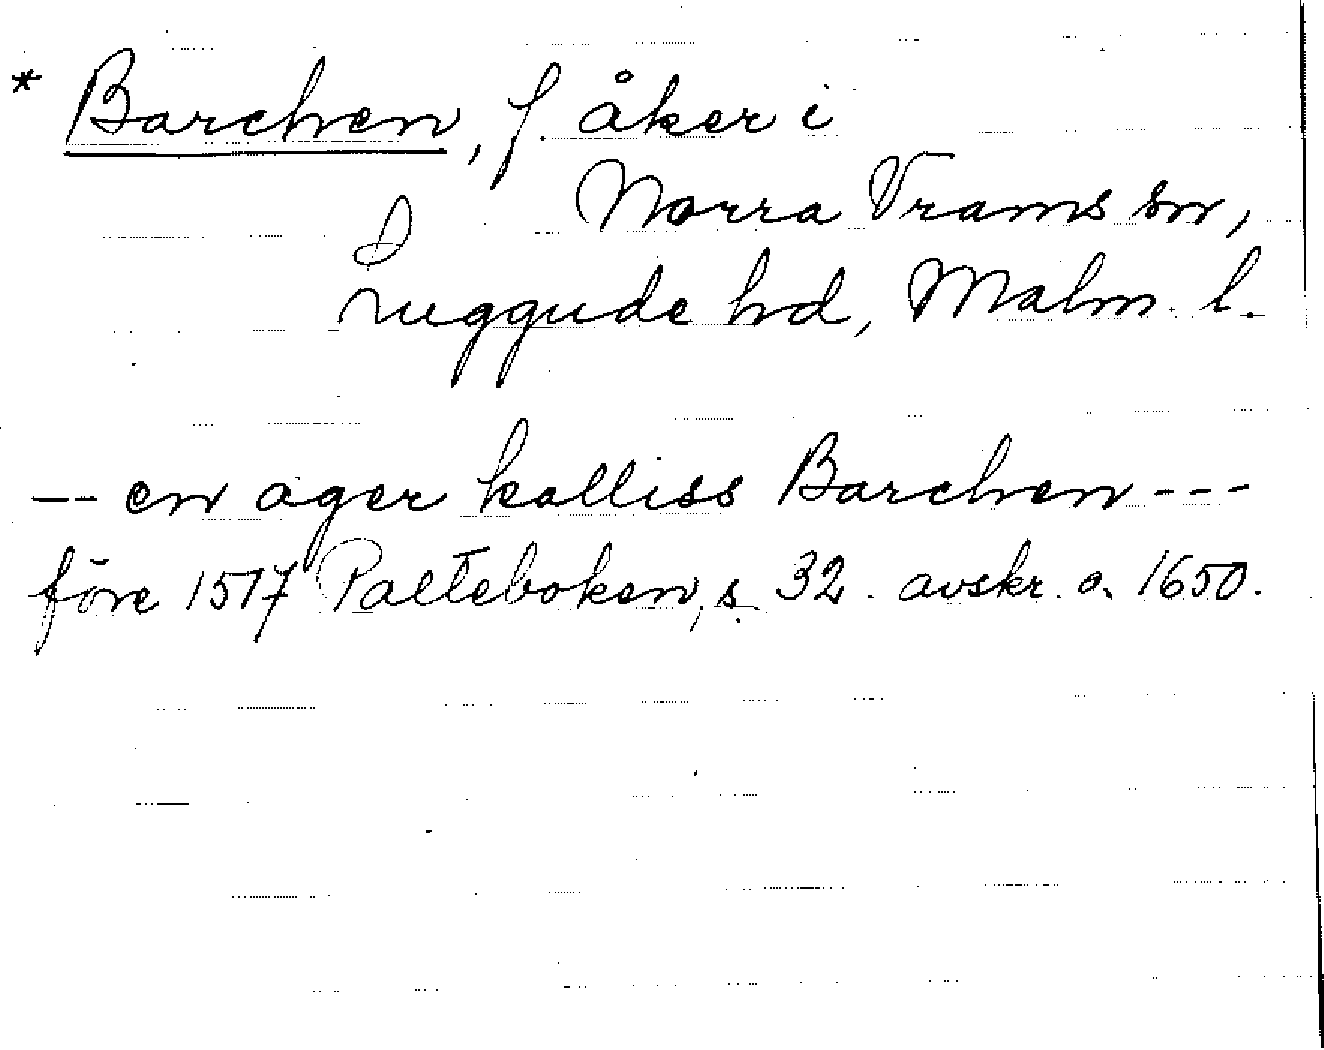 * Barchen, f. åker i
Norra Vrams sn,
Luggude hd, Malm. l.
-- en ager kalliss Barchen ---
före 1517 Palteboken, s. 32. avskr. a. 1650.